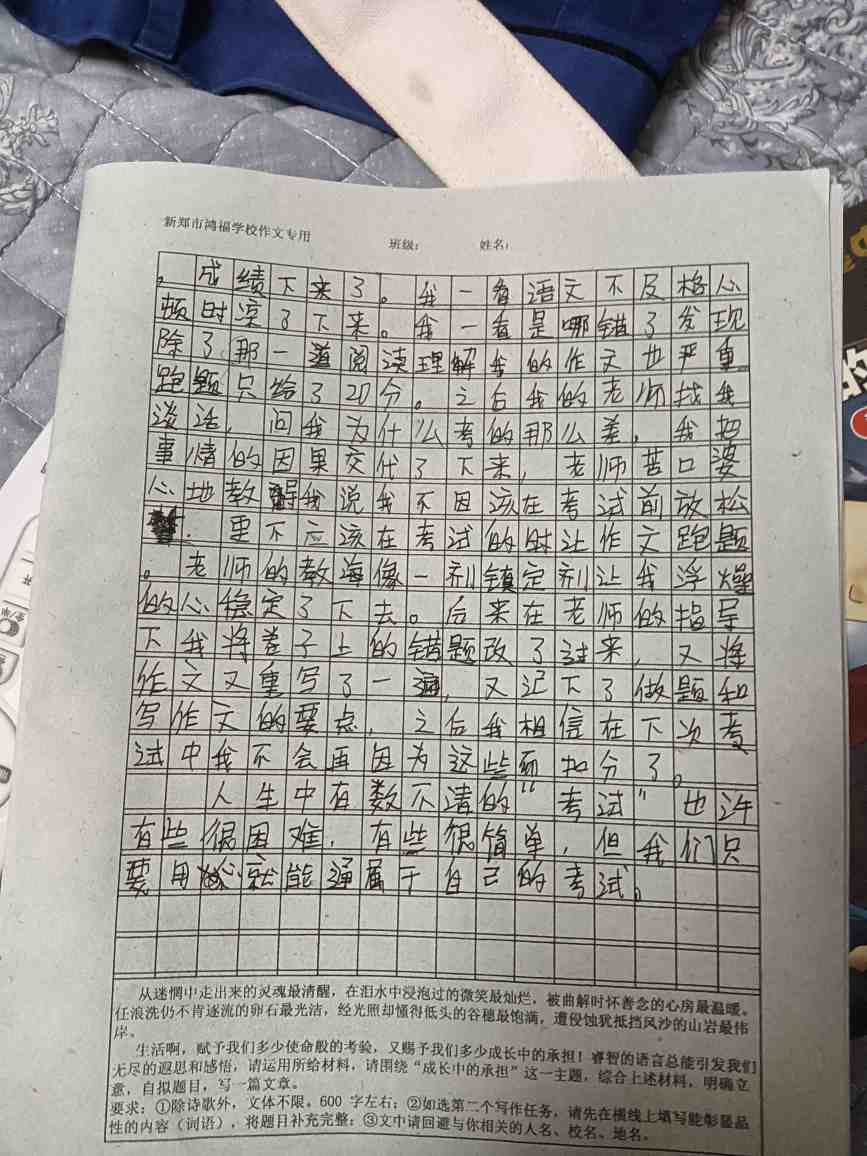 新郑市鸿福学校作文专用
班级： 姓名：
。成绩下来了。我一看语文不及格心
顿时凉了下来。我一看是哪错了发现
除了那一道阅读理解我的作文也严重
跑题只给了20分。之后我的老师找我
谈话，问我为什么考的那么差，我把
事情的因果交代了下来，老师苦口婆
心地教醒我说我不因该在考试前放松
，更不应该在考试的时让作文跑题
。老师的教海像一剂镇定剂让我浮燥
的心稳定了下去。后来在老师的指导
下我将卷子上的错题改了过来，又将
作文又重写了一遍，又记下了做题和
写作文的要点，之后我相信在下次考
试中我不会再因为这些而扣分了。
人生中有数不清的“考试”也许
有些很困难，有些很简单，但我们只
要用心就能通属于自己的考试。
从迷惘中走出来的灵魂最清醒，在泪水中浸泡过的微笑最灿烂，被曲解时怀善念的心房最温暖。
任浪洗仍不肯逐流的卵石最光洁，经光照却懂得低头的谷穗最饱满，遭侵蚀犹抵挡风沙的山岩最伟
岸。
生活啊，赋予我们多少使命般的考验，又赐予我们多少成长中的承担！睿智的语言总能引发我们
无尽的遐思和感悟，请运用所给材料，请围绕“成长中的承担”这一主题，综合上述材料，明确立
意，自拟题目，写一篇文章。
要求：①除诗歌外，文体不限。600 字左右；②如选第二个写作任务，请先在横线上填写能彰显品
性的内容（词语），将题目补充完整；③文中请回避与你相关的人名、校名、地名。